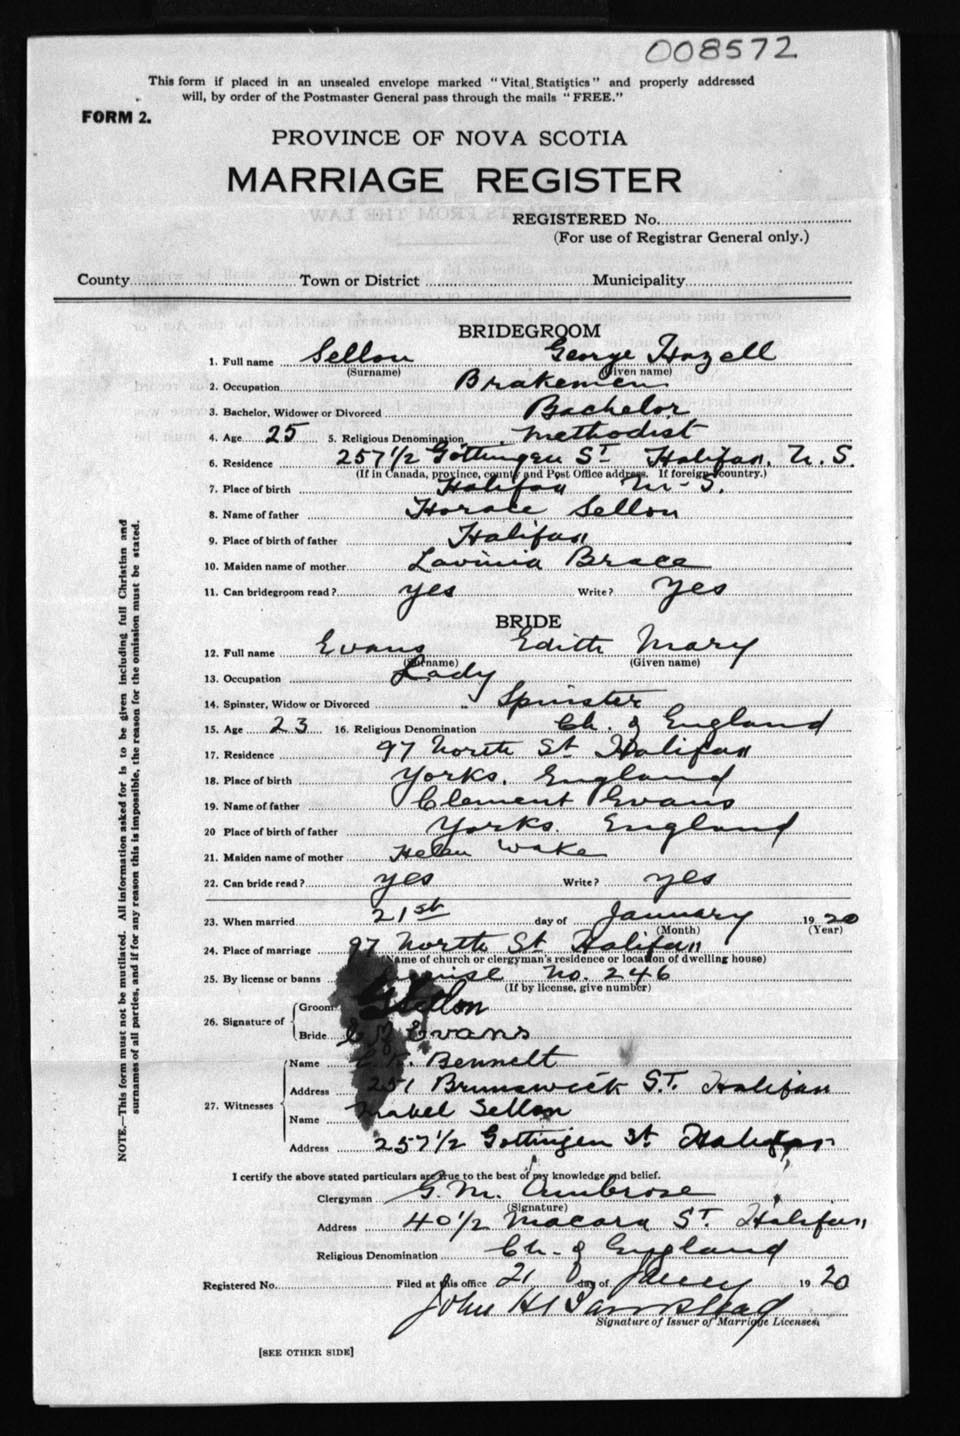 008572
This form if placed in an unsealed envelope marked "Vital Statistics" and properly addressed
will, by order of the Postmaster General pass through the mails "FREE."
FORM 2.
PROVINCE OF NOVA SCOTIA
MARRIAGE REGISTER
REGISTERED No.
(For use of Registrar General only.)
County Town or District Municipality
BRIDEGROOM
1. Full name Sellon George Hazell
(Surname) (Given name)
2. Occupation Brakeman
3. Bachelor, Widower or Divorced Bachelor
4. Age 25 5. Religious Denomination Methodist
6. Residence 257½ Gottingen St. Halifax, N.S.
(If in Canada, province, county and Post Office address. If foreign country.)
7. Place of birth Halifax N.S.
8. Name of father Horace Sellon
9. Place of birth of father Halifax
10. Maiden name of mother Lavinia Brace
11. Can bridegroom read? yes Write? Yes
BRIDE
12. Full name Evans Edith Mary
(Surname) (Given name)
13. Occupation Lady
14. Spinster, Widow or Divorced Spinster
15. Age 23 16. Religious Denomination Ch. of England
17. Residence 97 North St Halifax
18. Place of birth Yorks. England
19. Name of father Clement Evans
20 Place of birth of father Yorks. England
21. Maiden name of mother Helen Wake
22. Can bride read? yes Write? yes
23. When married 21st day of January 1920
(Month) (Year)
24. Place of marriage 97 North St Halifax
(Name of church or clergyman's residence or location of dwelling house)
25. By license or banns No. 246
(If by license, give number)
26. Signature of Groom Sellon
Bride Evans
27. Witnesses Name Bennett
Address 251 Brunswick St. Halifax
Name Mabel Sellon
Address 257½ Gottingen St. Halifax
I certify the above stated particulars are true to the best of my knowledge and belief.
Clergyman G. M. Ambrose
(Signature)
Address 40½ Macara St. Halifax
Religious Denomination Ch. of England
Registered No. Filed at this office 21 day of 1920
John H
Signature of Issuer of Marriage Licenses.
[SEE OTHER SIDE]
NOTE.—This form must not be mutilated. All information asked for is to be given including full Christian and
surnames of all parties, and if for any reason this is impossible, the reason for the omission must be stated.